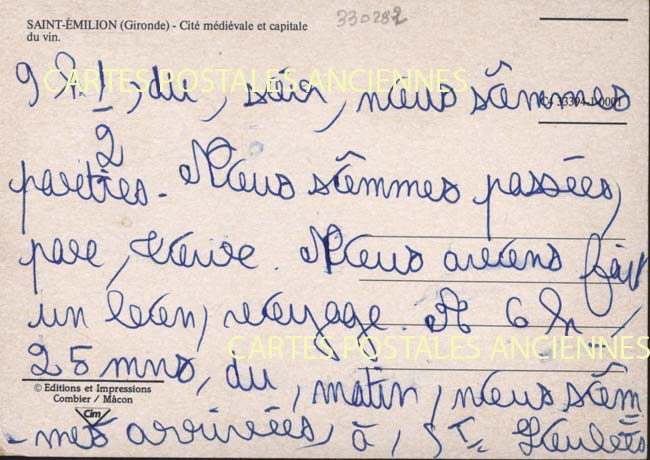 SAINT-ÉMILION (Gironde) - Cité médiévale et capitale
du vin.
330282
CARTES POSTALES ANCIENNES
9 h. 1/2, du, soir, nous sâmmes
parties. Nous sâmmes passées,
par, Nous avons fait
un bon, voyage. A 6 h,
CARTES POSTALES ANCIENNES
25 mns, du, matin, nous sâm=
© Editions et Impressions
Combier / Mâcon
Cim
-mes arrivées, à, ST=